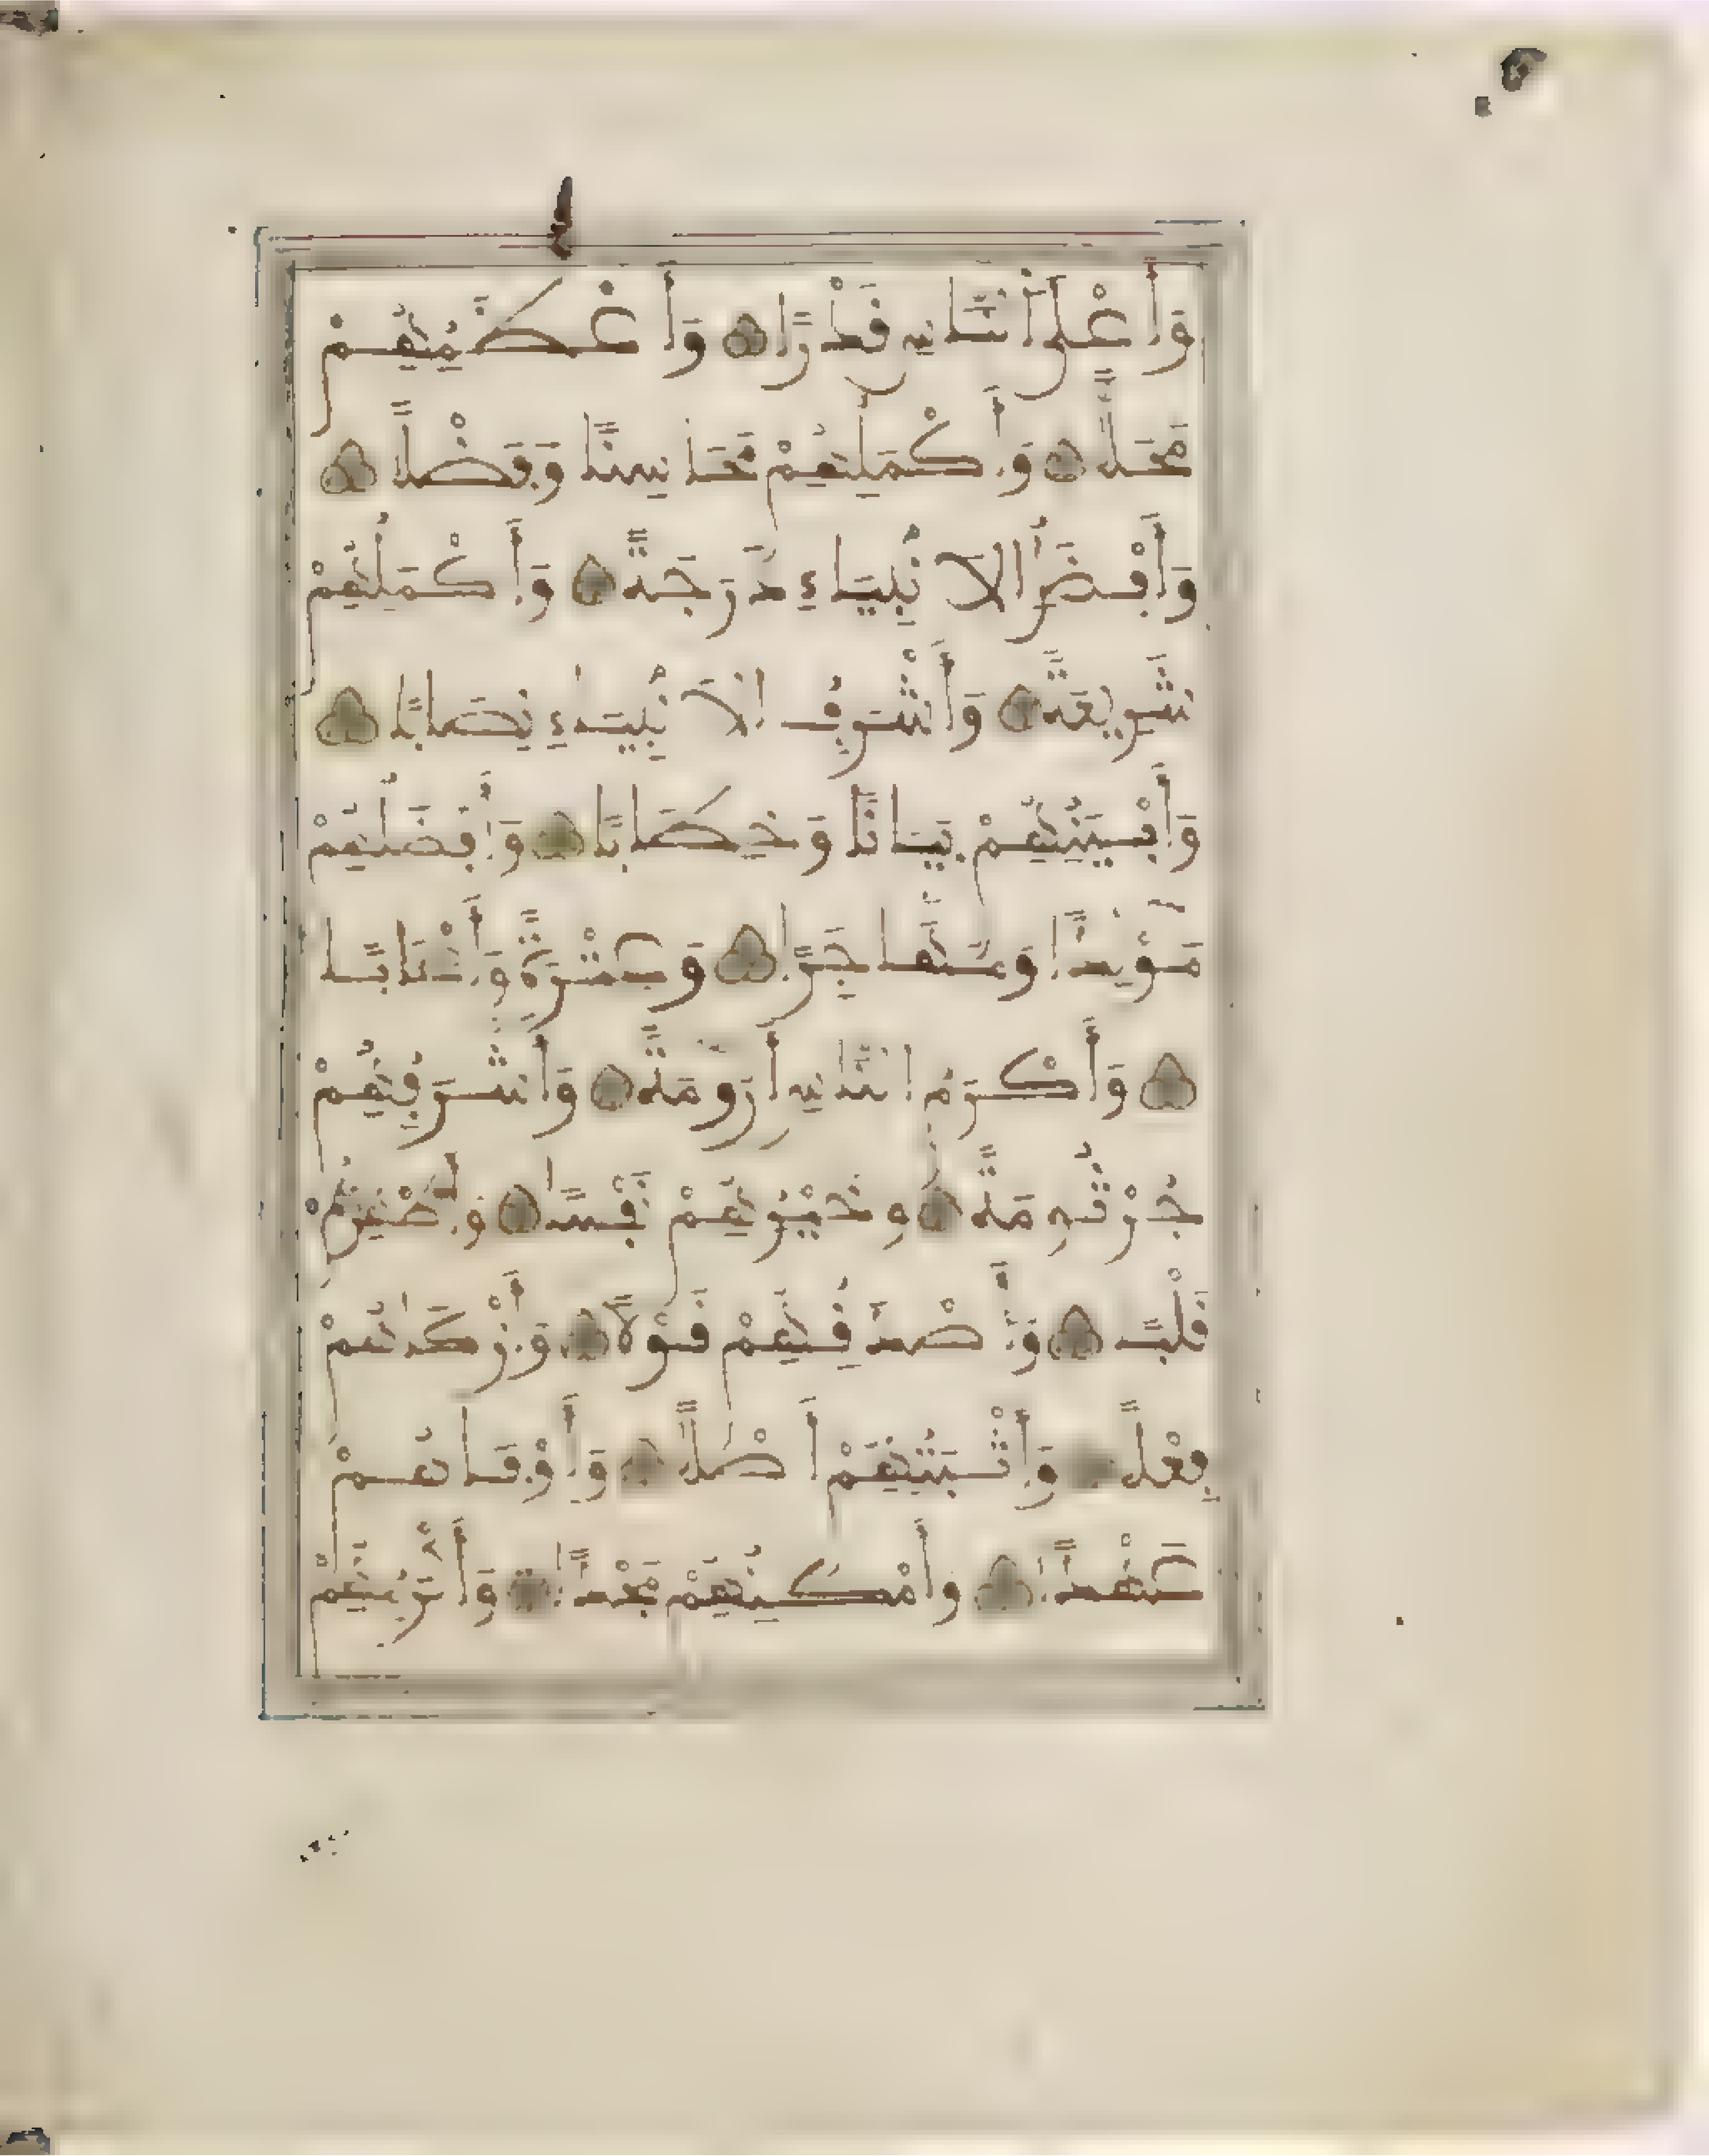 وَأَعْلَى النَّاسِ قَدْرًا وَأَعْظَمِهِمْ
مَحَلًّا وَأَكْمَلِهِمْ مَحَاسِنًا وَفَضْلًا
وَأَفْضَلِ الْأَنْبِيَاءِ دَرَجَةً وَأَكْمَلِهِمْ
شَرِيعَةً وَأَشْرَفِ الْأَنْبِيَاءِ نِصَابًا
وَأَبْيَنِهِمْ بَيَانًا وَخِطَابًا وَأَفْضَلِهِمْ
مَوْلِدًا وَمُهَاجَرًا وَعِتْرَةً وَأَصْحَابًا
وَأَكْرَمِ النَّاسِ أَرُومَةً وَأَشْرَفِهِمْ
جُرْثُومَةً وَخَيْرِهِمْ نَفْسًا وَأَطْهَرِهِمْ
قَلْبًا وَأَصْدَقِهِمْ قَوْلًا وَأَزْكَاهُمْ
فِعْلًا وَأَثْبَتِهِمْ أَصْلًا وَأَوْفَاهُمْ
عَهْدًا وَأَمْكَنِهِمْ مَجْدًا